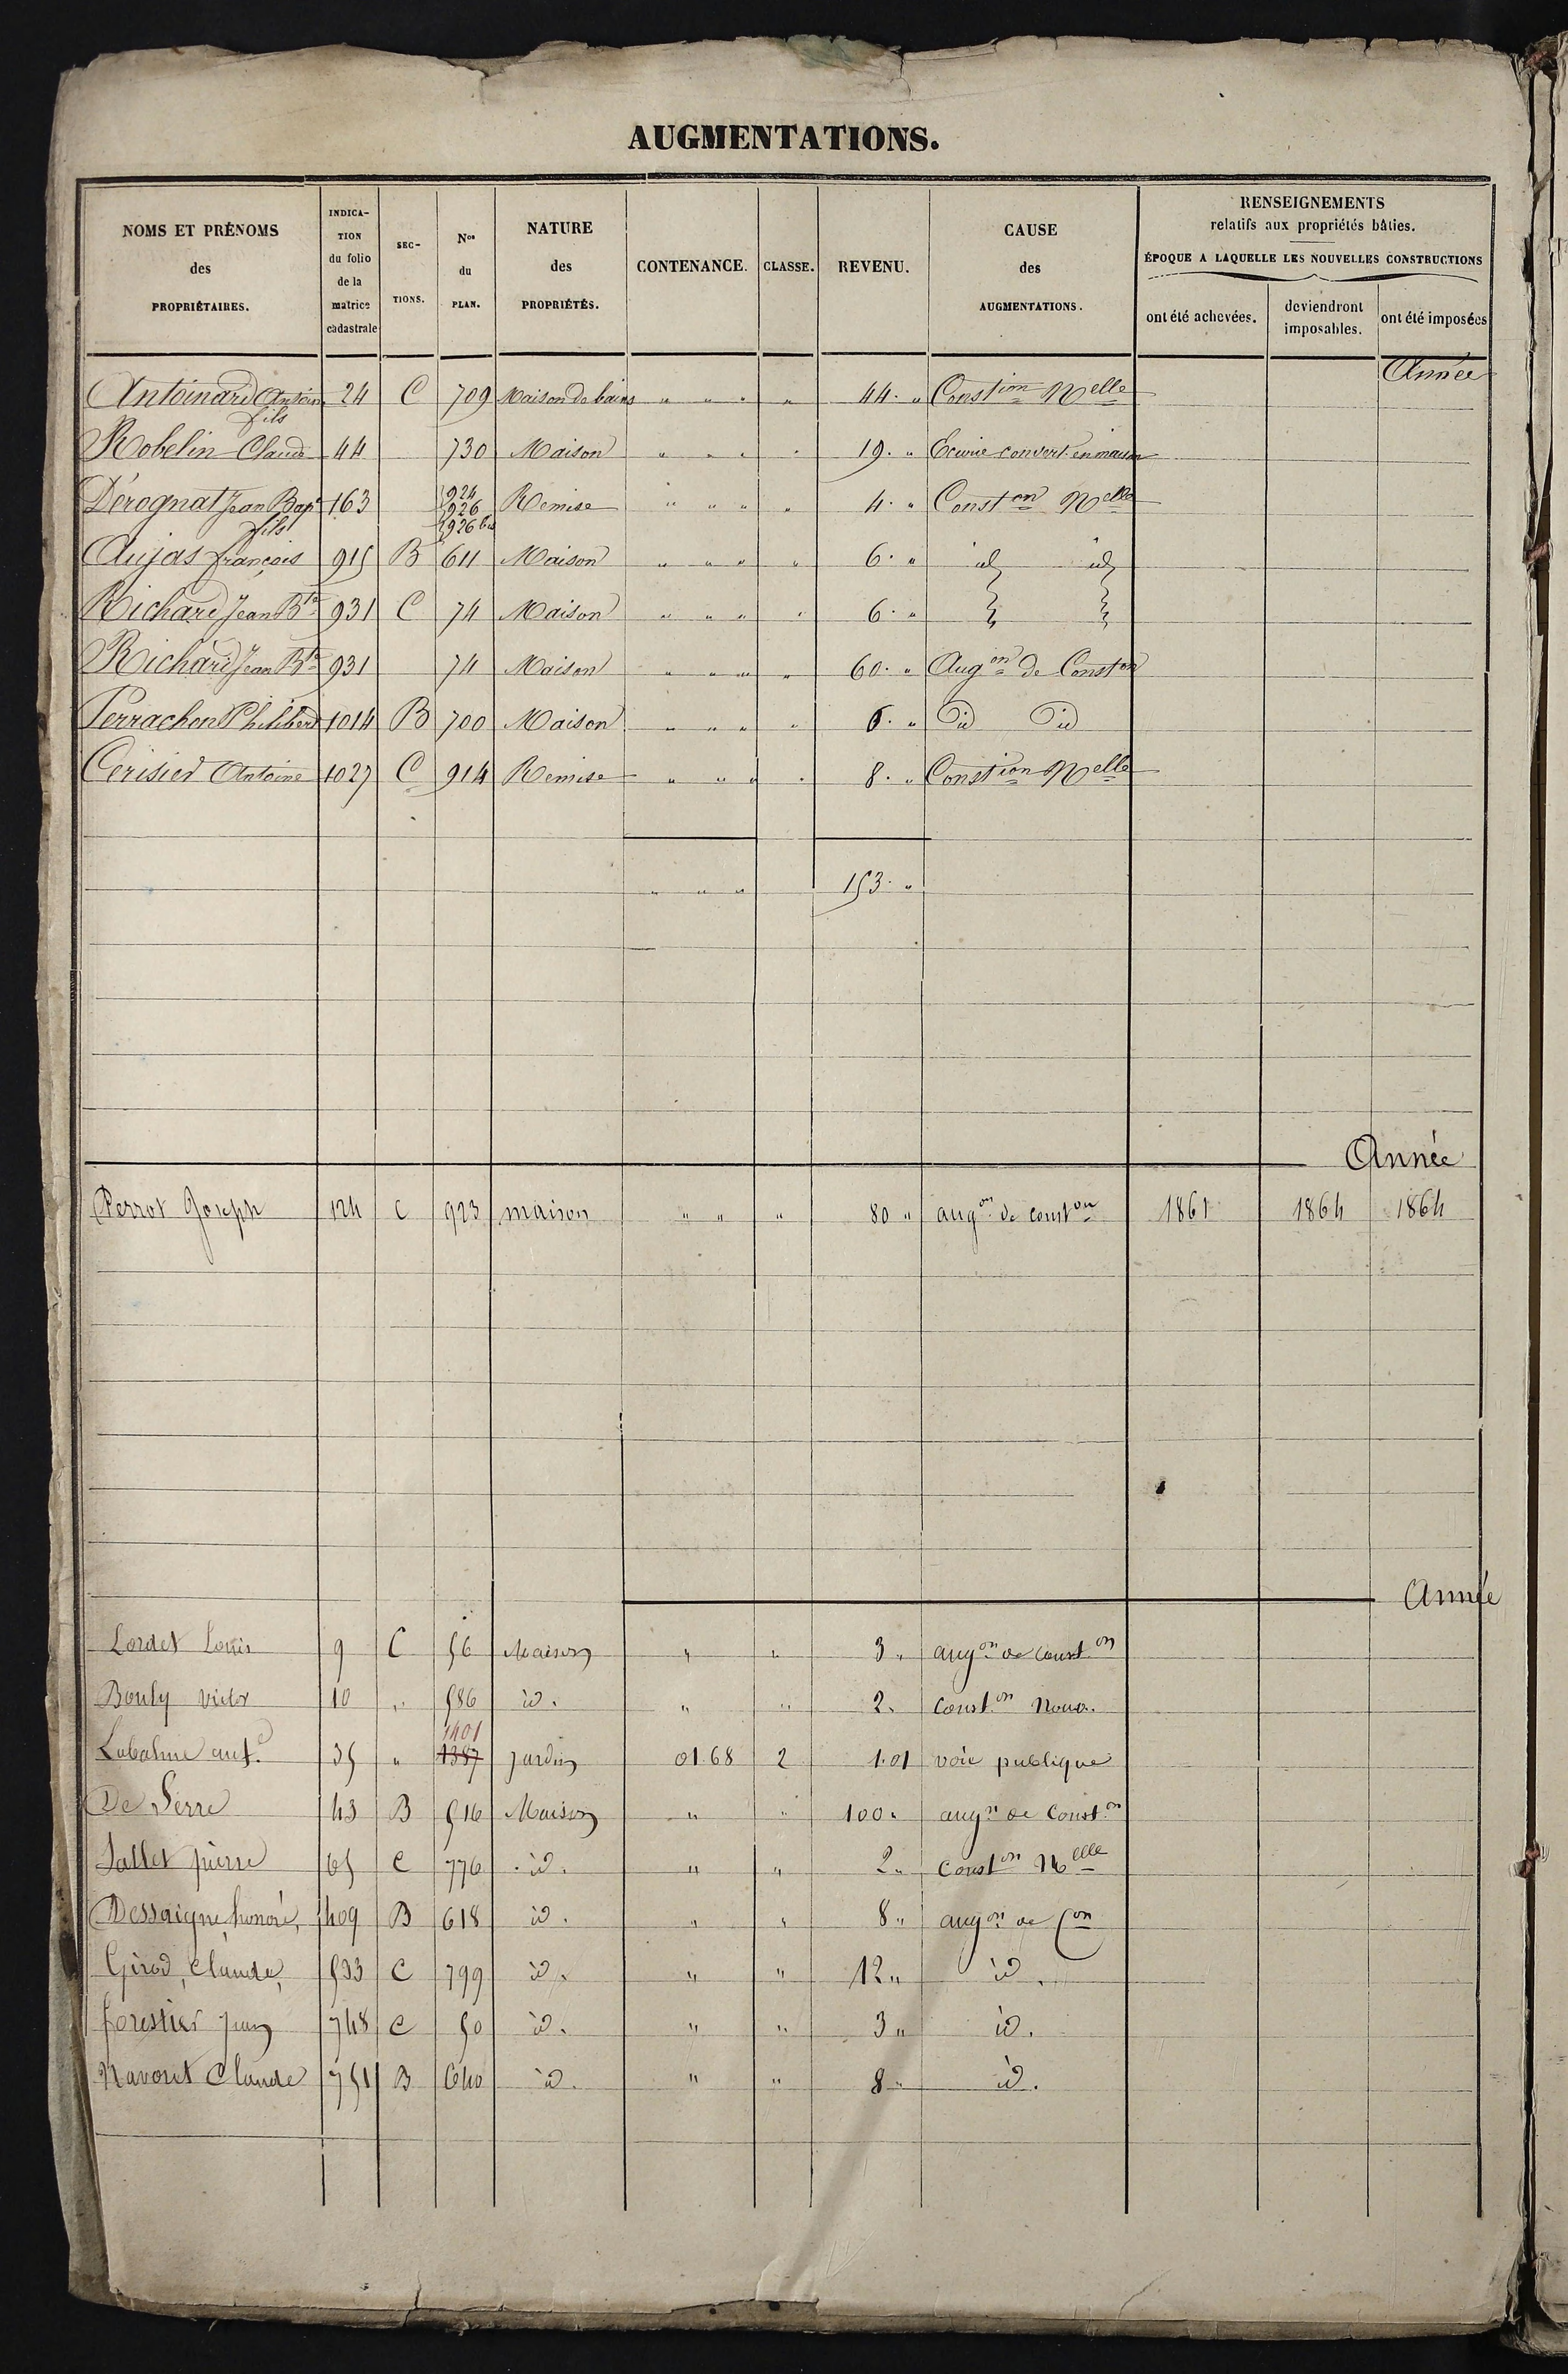 AUGMENTATIONS.
NOMS ET PRÉNOMS des PROPRIÉTAIRES. INDICA-TION du folio de la matrice cadastrale SEC-TIONS. Nos du PLAN. NATURE des PROPRIÉTÉS. CONTENANCE. CLASSE. REVENU. CAUSE des AUGMENTATIONS. RENSEIGNEMENTS relatifs aux propriétés bâties. ÉPOQUE A LAQUELLE LES NOUVELLES CONSTRUCTIONS ont été achevées. deviendront imposables. ont été imposées
Année
Antoinard Antoin fils 24 C 709 Maison de bains " " " " 44. " Constion Nelle
Robelin Claude 44 730 Maison " " " " 19. " Ecurie convert. en maison
Dérognat Jean Bapt fils 163 924 926 926 bis Remise " " " " 4. " Conston Nelle
Aujas françois 915 B 611 Maison " " " " 6. " id id
Richard Jean Bte 931 C 74 Maison " " " " 6. "
Richard Jean Bte 931 74 Maison " " " " 60. " Augon de Conston
Perrachon Philibert 1014 B 700 Maison " " " " 6. " id id
Cerisier Antoine 1027 C 914 Remise " " " " 8. " Constion Nelle
" " " 153. "
Année
Perrot Joseph 124 C 923 maison " " " 80 " augon de conston 1861 1864 1864
Année
Lordet Louis 9 C 56 Maison " " 3 " augon de conston
Bouly victor 10 " 586 id. " " 2. const.on Nouv.
1401
35 " 1387 jardin 01.68 2 1.01 voie publique
De Serre 43 B 516 Maison " " 100 " augn de Const.on
Sallet pierre 65 C 776 id. " " 2 " Conston Nelle
Dessaigne honoré, 409 B 618 id. " " 8 " augon de Con
Girod, Claude, 533 C 799 id. " " 12 " id.
forestier Jean 748 C 50 id. " " 3 " id.
Claude 751 B 640 id. " " 8 " id.